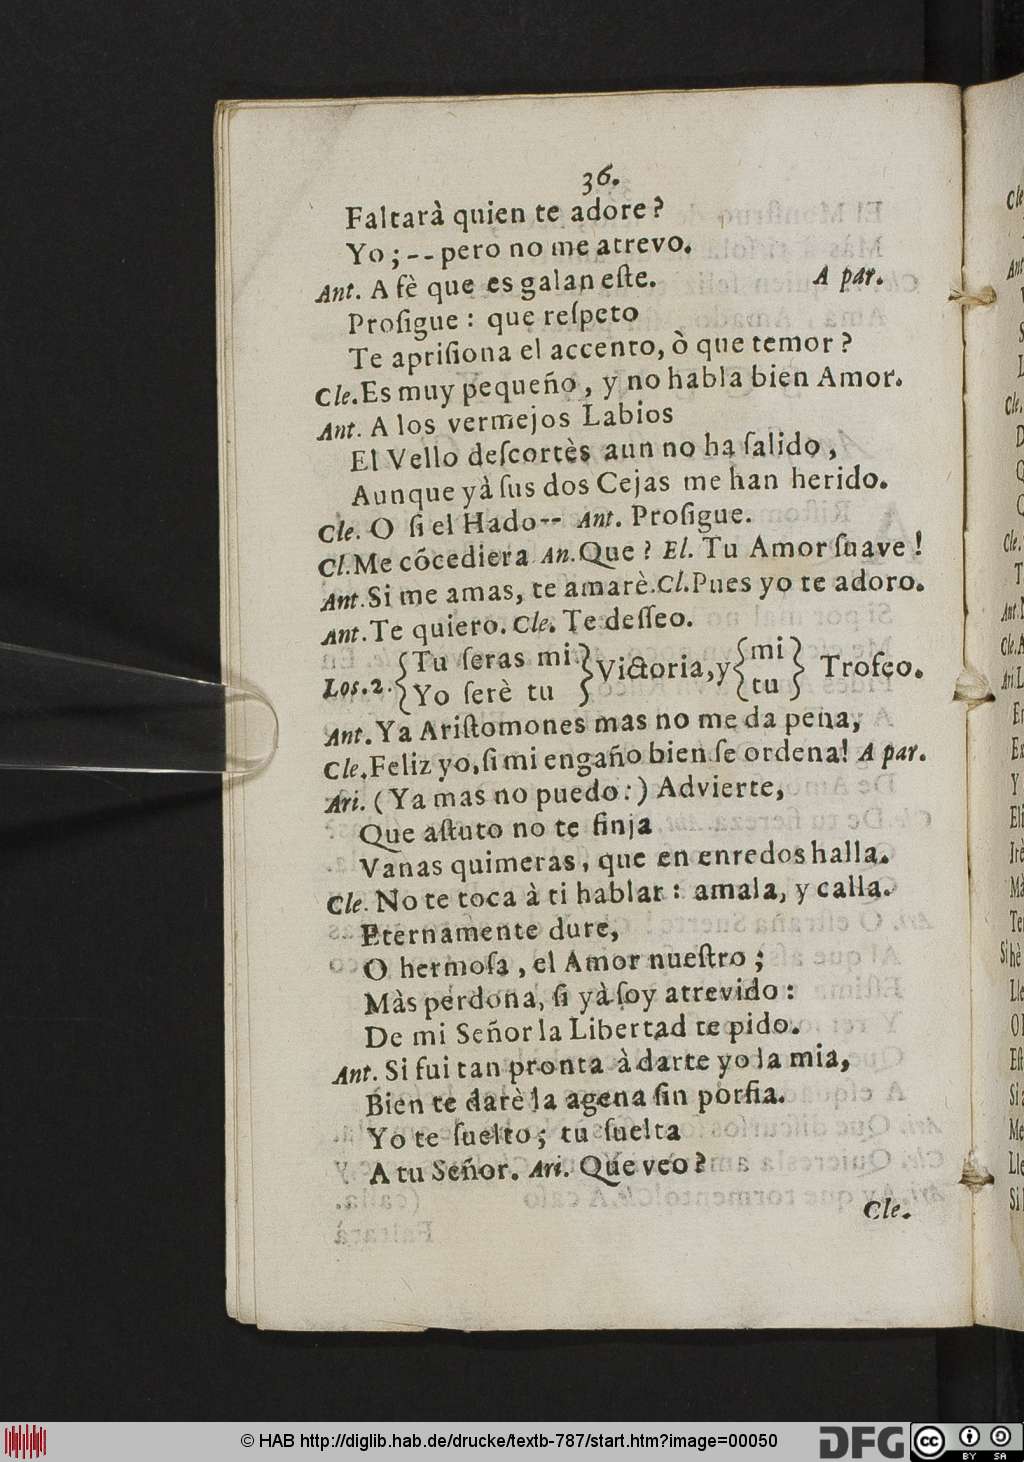 36.
Faltarà quien te adore?
Yo; -- pero no me atrevo.
Ant. A fè que es galan eſte. A par.
Proſigue: que reſpeto
Te apriſiona el accento, ò que temor?
Cle. Es muy pequeño, y no habla bien Amor.
Ant. A los vermejos Labios
El Vello deſcortès aun no ha ſalido,
Aunque yà ſus dos Cejas me han herido.
Cle. O ſi el Hado-- Ant. Proſigue.
Cl. Me cócediera An. Que? El. Tu Amor ſuave!
Ant. Si me amas, te amarè. Cl. Pues yo te adoro.
Ant. Te quiero. Cle. Te deſſeo.
Los. 2. {Tu ſeras mi / Yo ſerè tu} Victoria, y {mi / tu} Trofeo.
Ant. Ya Ariſtomones mas no me da pena,
Cle. Feliz yo, ſi mi engaño bien ſe ordena! A par.
Ari. (Ya mas no puedo:) Advierte,
Que aſtuto no te finja
Vanas quimeras, que en enredos halla.
Cle. No te toca à ti hablar: amala, y calla.
Eternamente dure,
O hermoſa, el Amor nueſtro;
Màs perdona, ſi yà ſoy atrevido:
De mi Señor la Libertad te pido.
Ant. Si fui tan pronta à darte yo la mia,
Bien te darè la agena ſin porfia.
Yo te ſuelto; tu ſuelta
A tu Señor. Ari. Que veo?
Cle.
© HAB http://diglib.hab.de/drucke/textb-787/start.htm?image=00050
DFG
cc BY SA